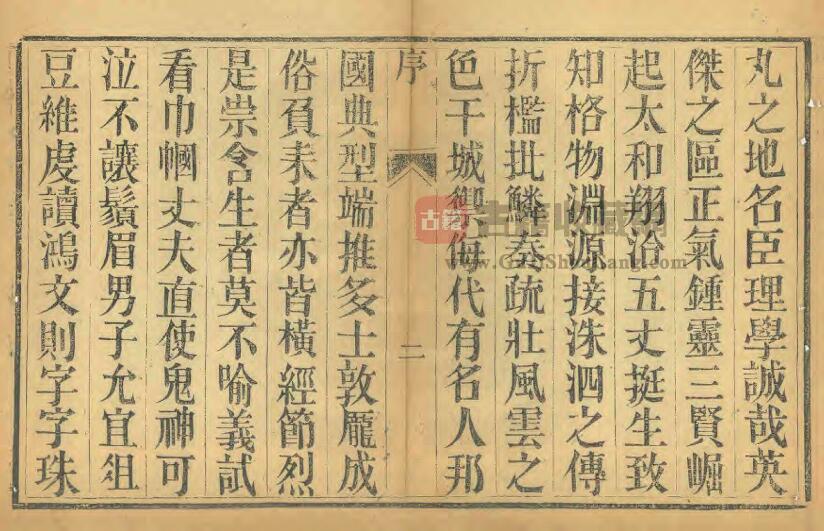 丸之地名臣理學誠哉英
傑之區正氣鍾靈三賢崛
起太和翔洽五丈挺生致
知格物淵源接洙泗之傳
折檻批鱗奏疏壯風雲之
色干城禦侮代有名人邦
序
二
國典型端推多士敦龐成
俗負耒者亦皆橫經節烈
是崇含生者莫不喻義試
看巾幗丈夫直使鬼神可
泣不讓鬚眉男子允宜俎
豆維虔讀鴻文則字字珠
古籍
古書收藏網